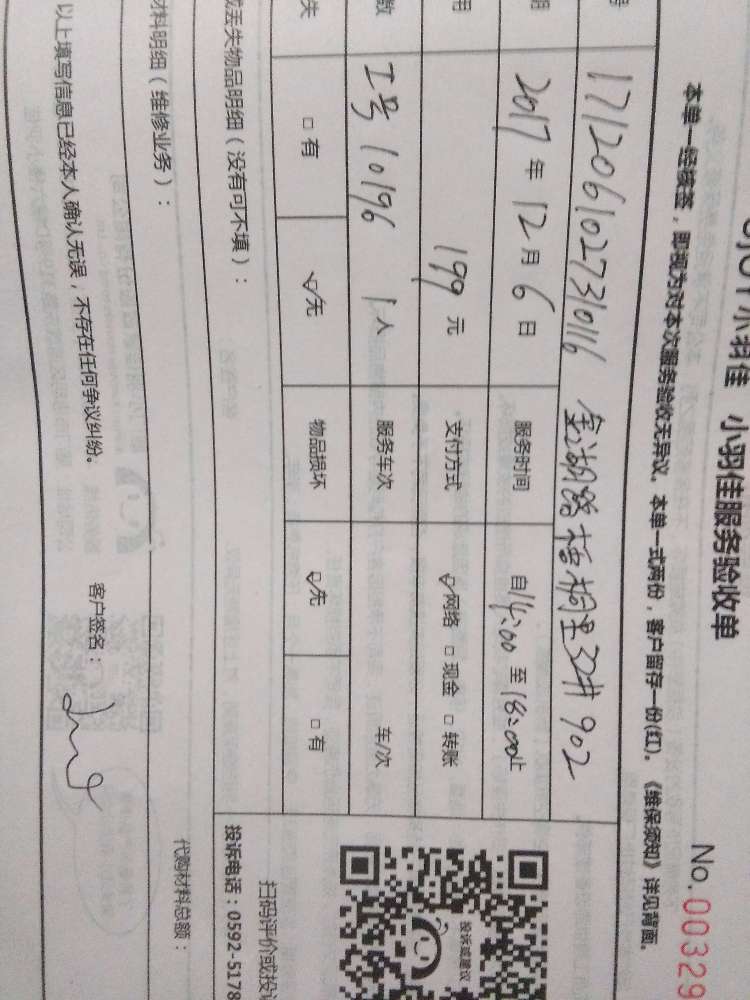 小羽佳 小羽佳服务验收单
No.00329
本单一经核签，即视为对本次服务验收无异议。本单一式两份，客户留存一份(红)。《维保须知》详见背面。
号 1712061027310116 金湖路梧桐里32# 902
期 2017年12月6日 服务时间 自14:00至18:00止
用 199元 支付方式 ☑网络 □现金 □转账
数 工号10196 1人 服务车次 车/次
失 □有 ☑无 物品损坏 ☑无 □有
或丢失物品明细（没有可不填）：
材料明细（维修业务）：
代购材料总额：
以上填写信息已经本人确认无误，不存在任何争议纠纷。
客户签名：
投诉或建议
扫码评价或投诉
投诉电话：0592-5178